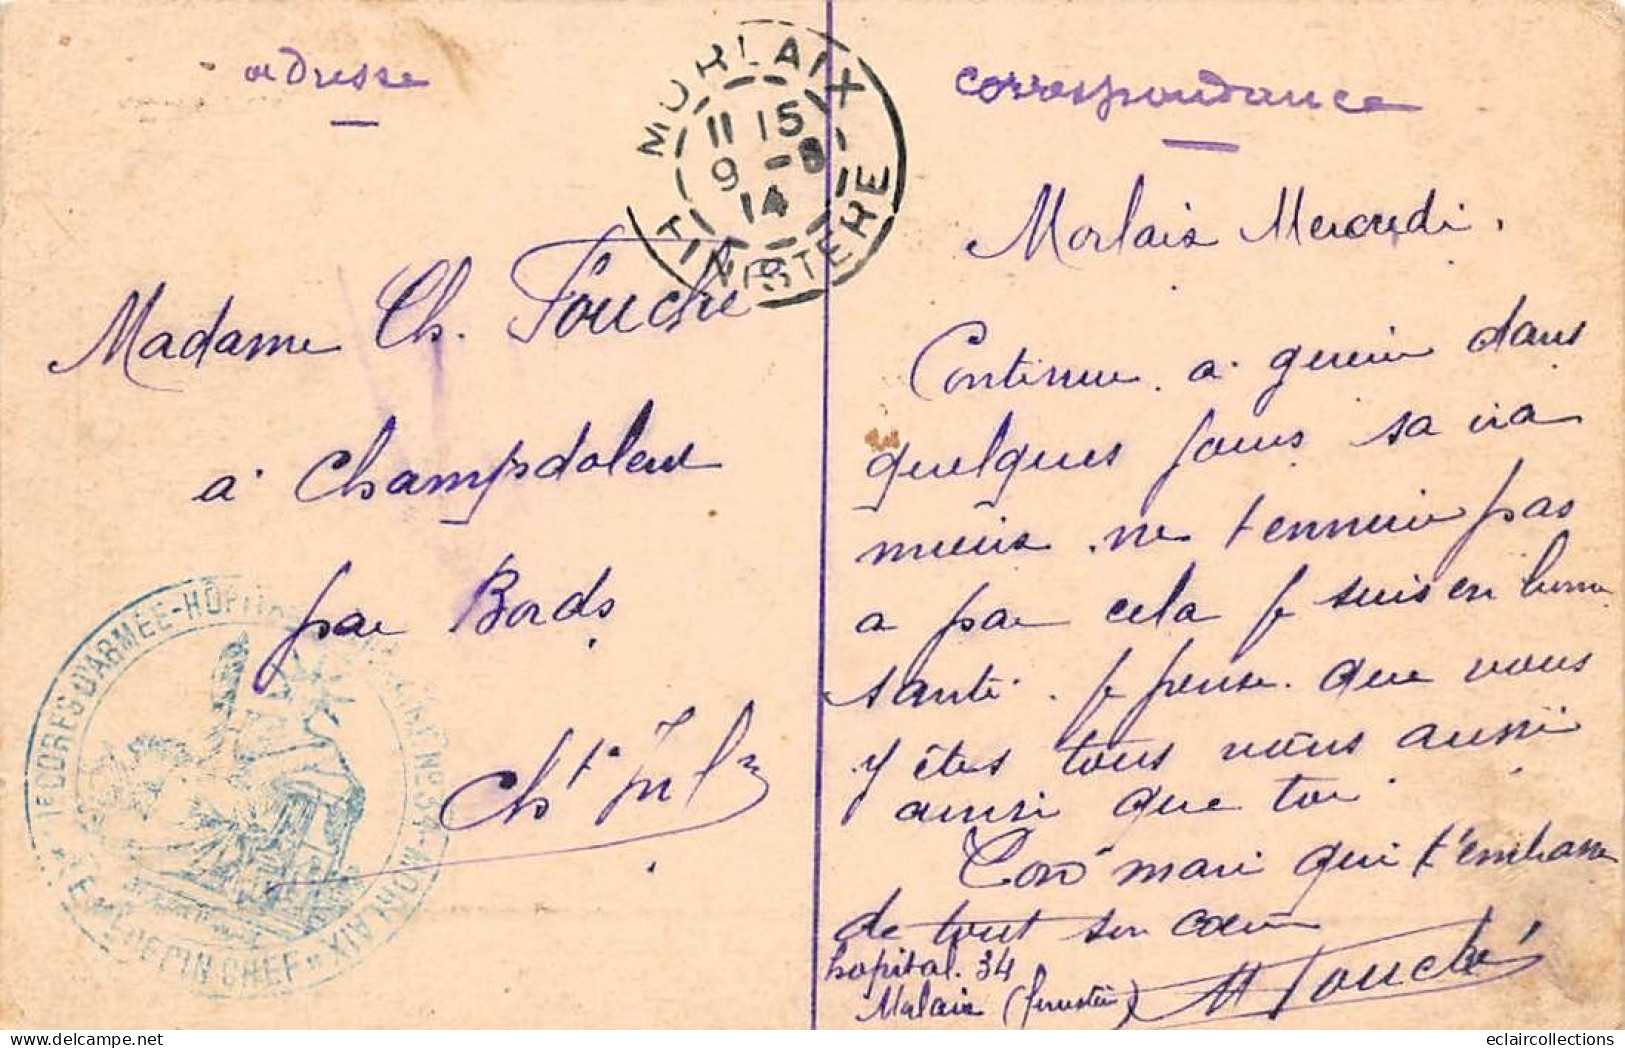 adresse
MORLAIX
11 15
9 -8
14
FINISTERE
Madame Ch. Fouché
à Champdolent
par Bords
Chte Infre
11E CORPS D'ARMÉE-HOPITAL N°34-MORLAIX
LE MEDECIN CHEF
correspondance
Morlaix Mercredi.
Continue. a. guerir dans
quelques jours sa ira
mieux. ne t ennuie pas
a par cela je suis en bonne
santé. Je pense. que vous
y êtes tous vous aussi
ainsi que toi
Ton mari qui t'embrasse
de tout son coeur
hopital. 34
Morlaix (finistère)
Fouché
eclaircollections